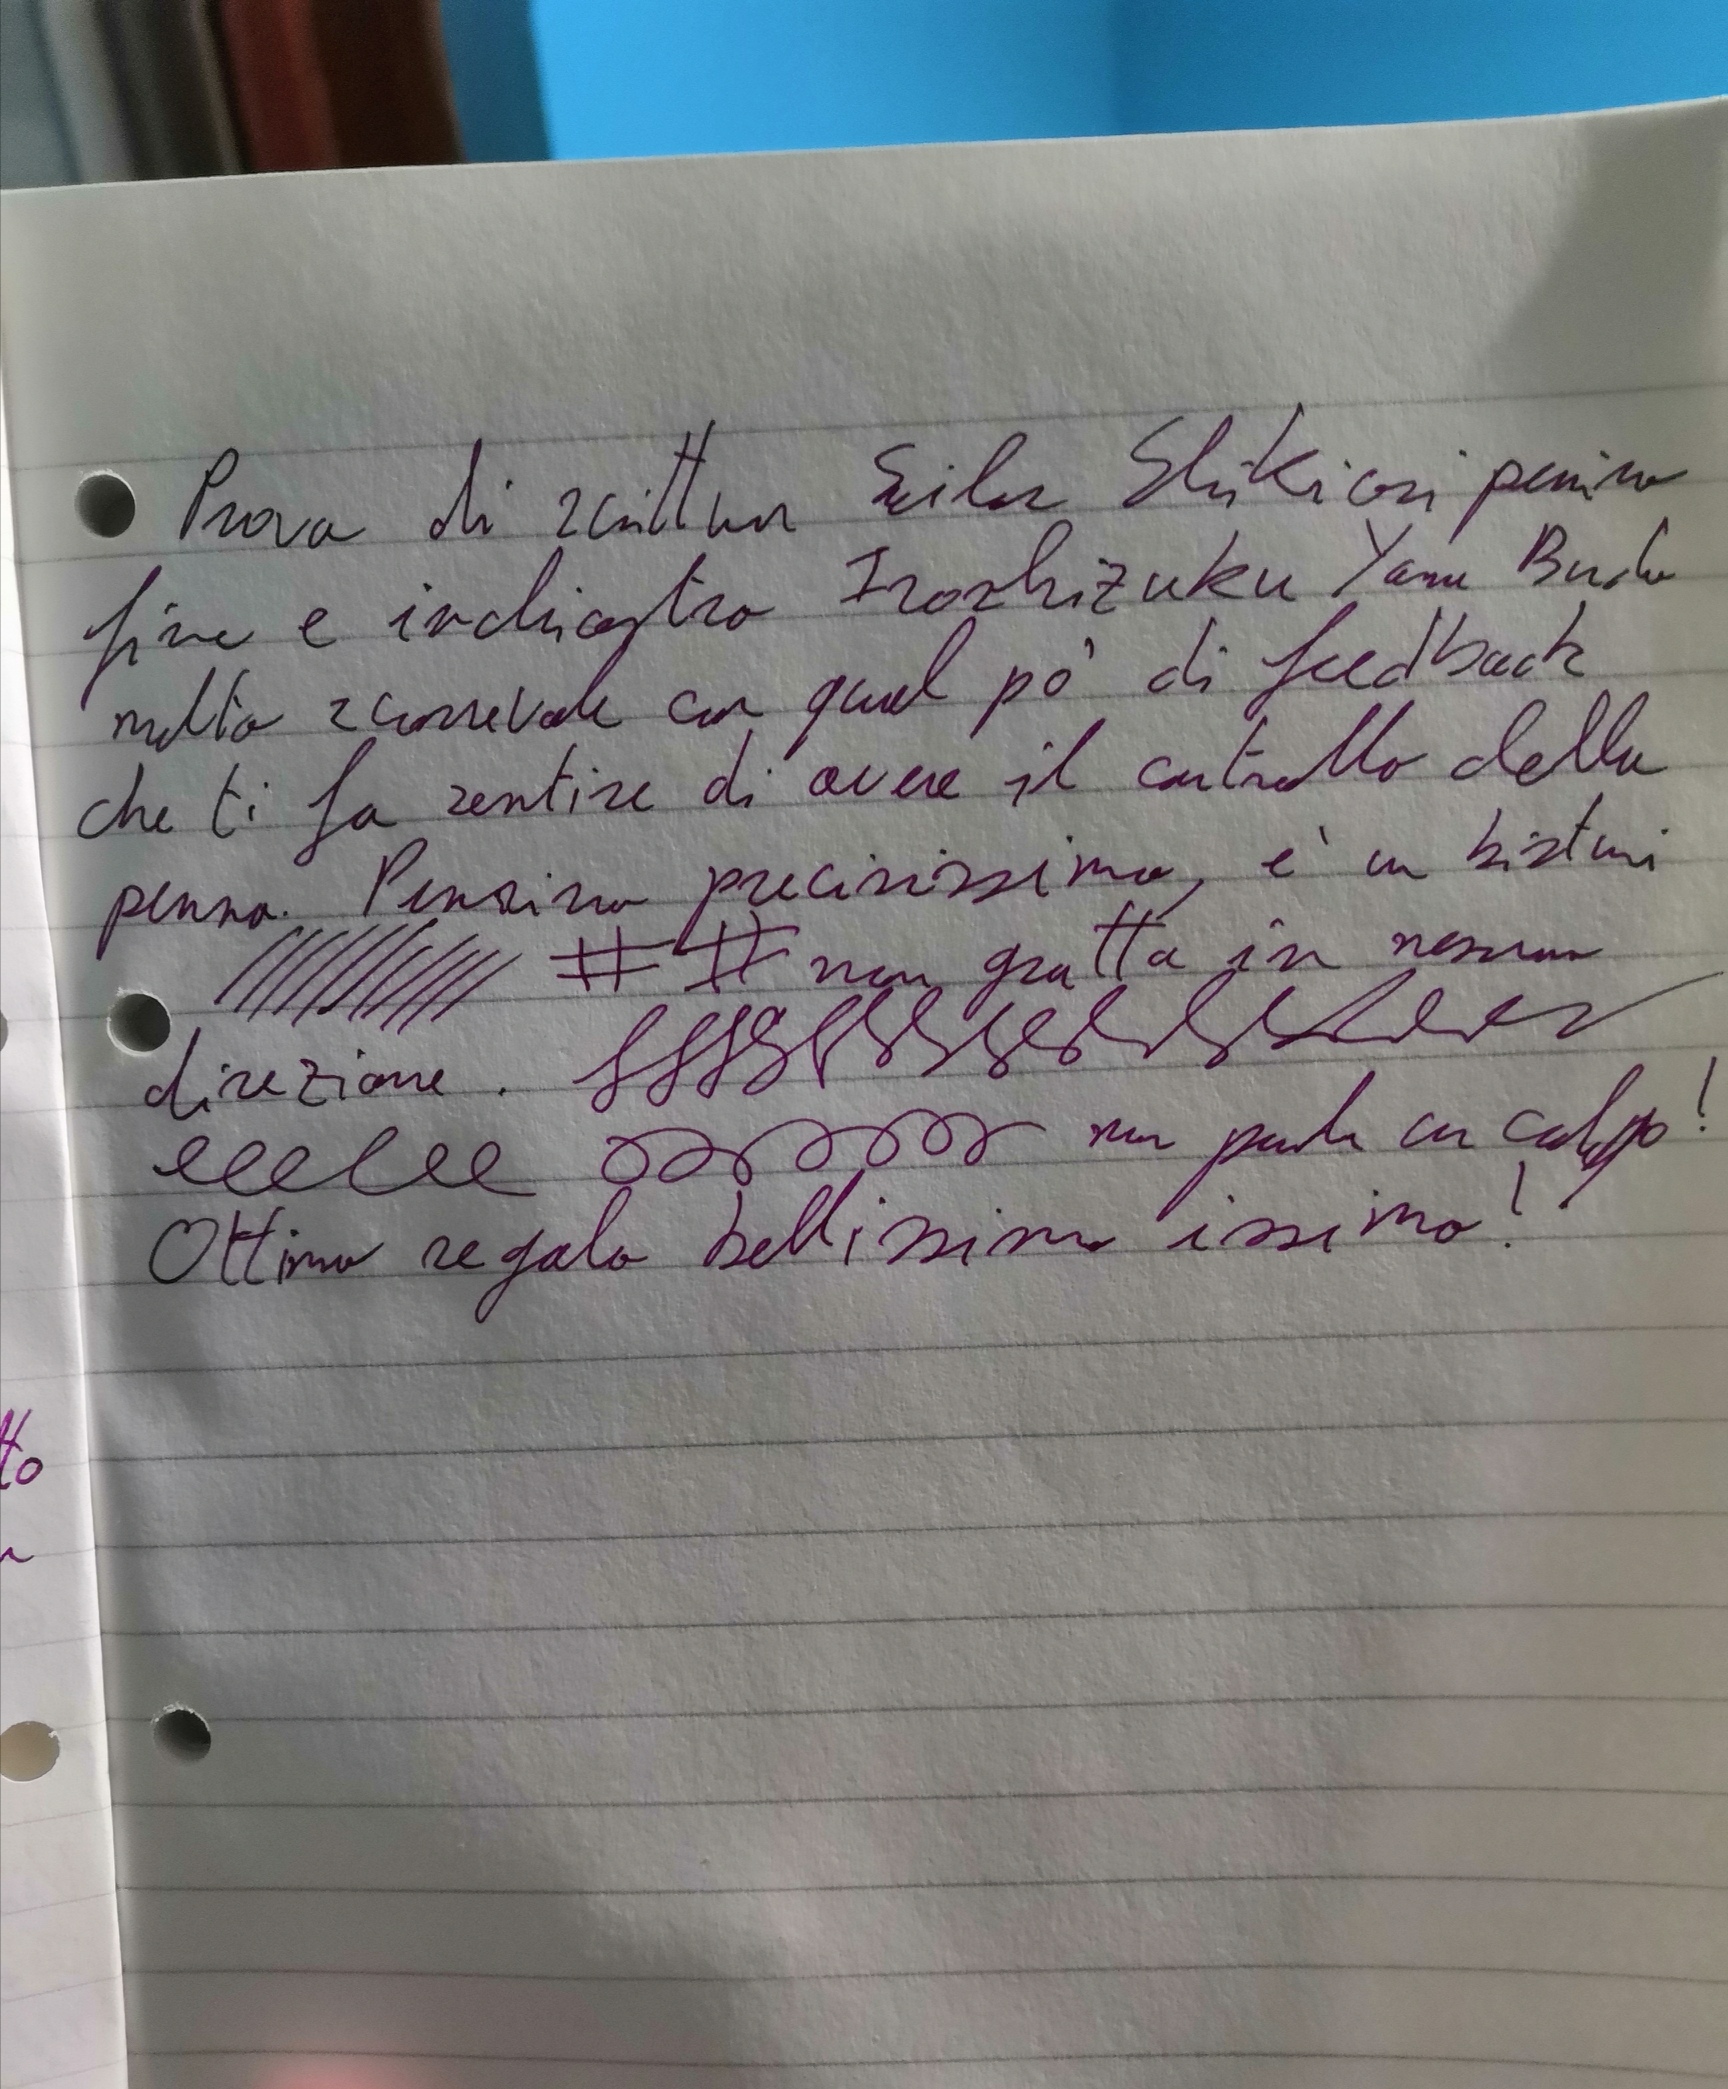 Prova di scrittura Sailor Shikiori pennino
fine e inchiostro Iroshizuku Yama Budo
molto scorrevole con quel pò di feedback
che ti fa sentire di avere il controllo della
penna. Pennino precisissimo, è un bisturi
## non gratta in nessuna
direzione.
non perde un colpo!
Ottimo regalo bellissimo issimo!
tto